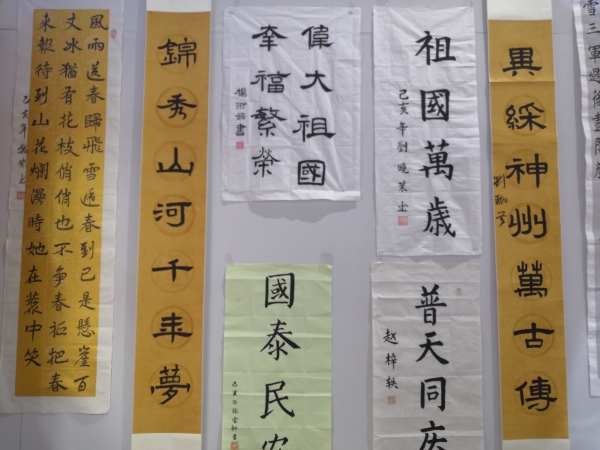 風雨送春歸飛雪迎春到已是懸崖百
丈冰猶有花枝俏俏也不爭春祗把春
來報待到山花爛漫時她在叢中笑
己亥年
錦秀山河千年夢
偉大祖國
幸福繁榮
書
祖國萬歲
己亥年劉曉
國泰民安
己亥年張雪
普天同庆
赵梓轶
異綵神州萬古傳
劉
雪三軍過後盡開顏